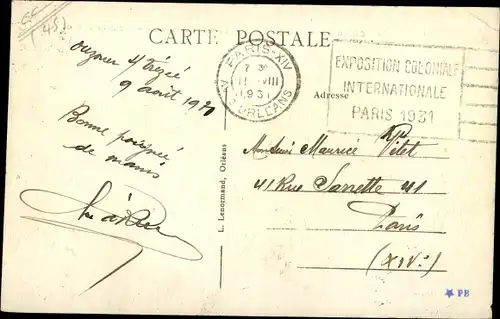 (45)
CARTE POSTALE
Ouzouer s/ Trézée
9 août 1931
Bonne poignée
de mains
PARIS-XIV
7 30
11 VIII
1931
ORLEANS
EXPOSITION COLONIALE
INTERNATIONALE
PARIS 1931
Adresse
L. Lenormand, Orléans
Monsieur Maurice
41 Rue Sarrette 41
Paris
(XIVe)
★ PB